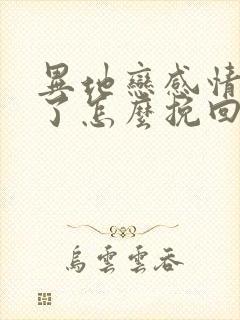 異地戀感情
了怎麼挽回
烏雲雲吞